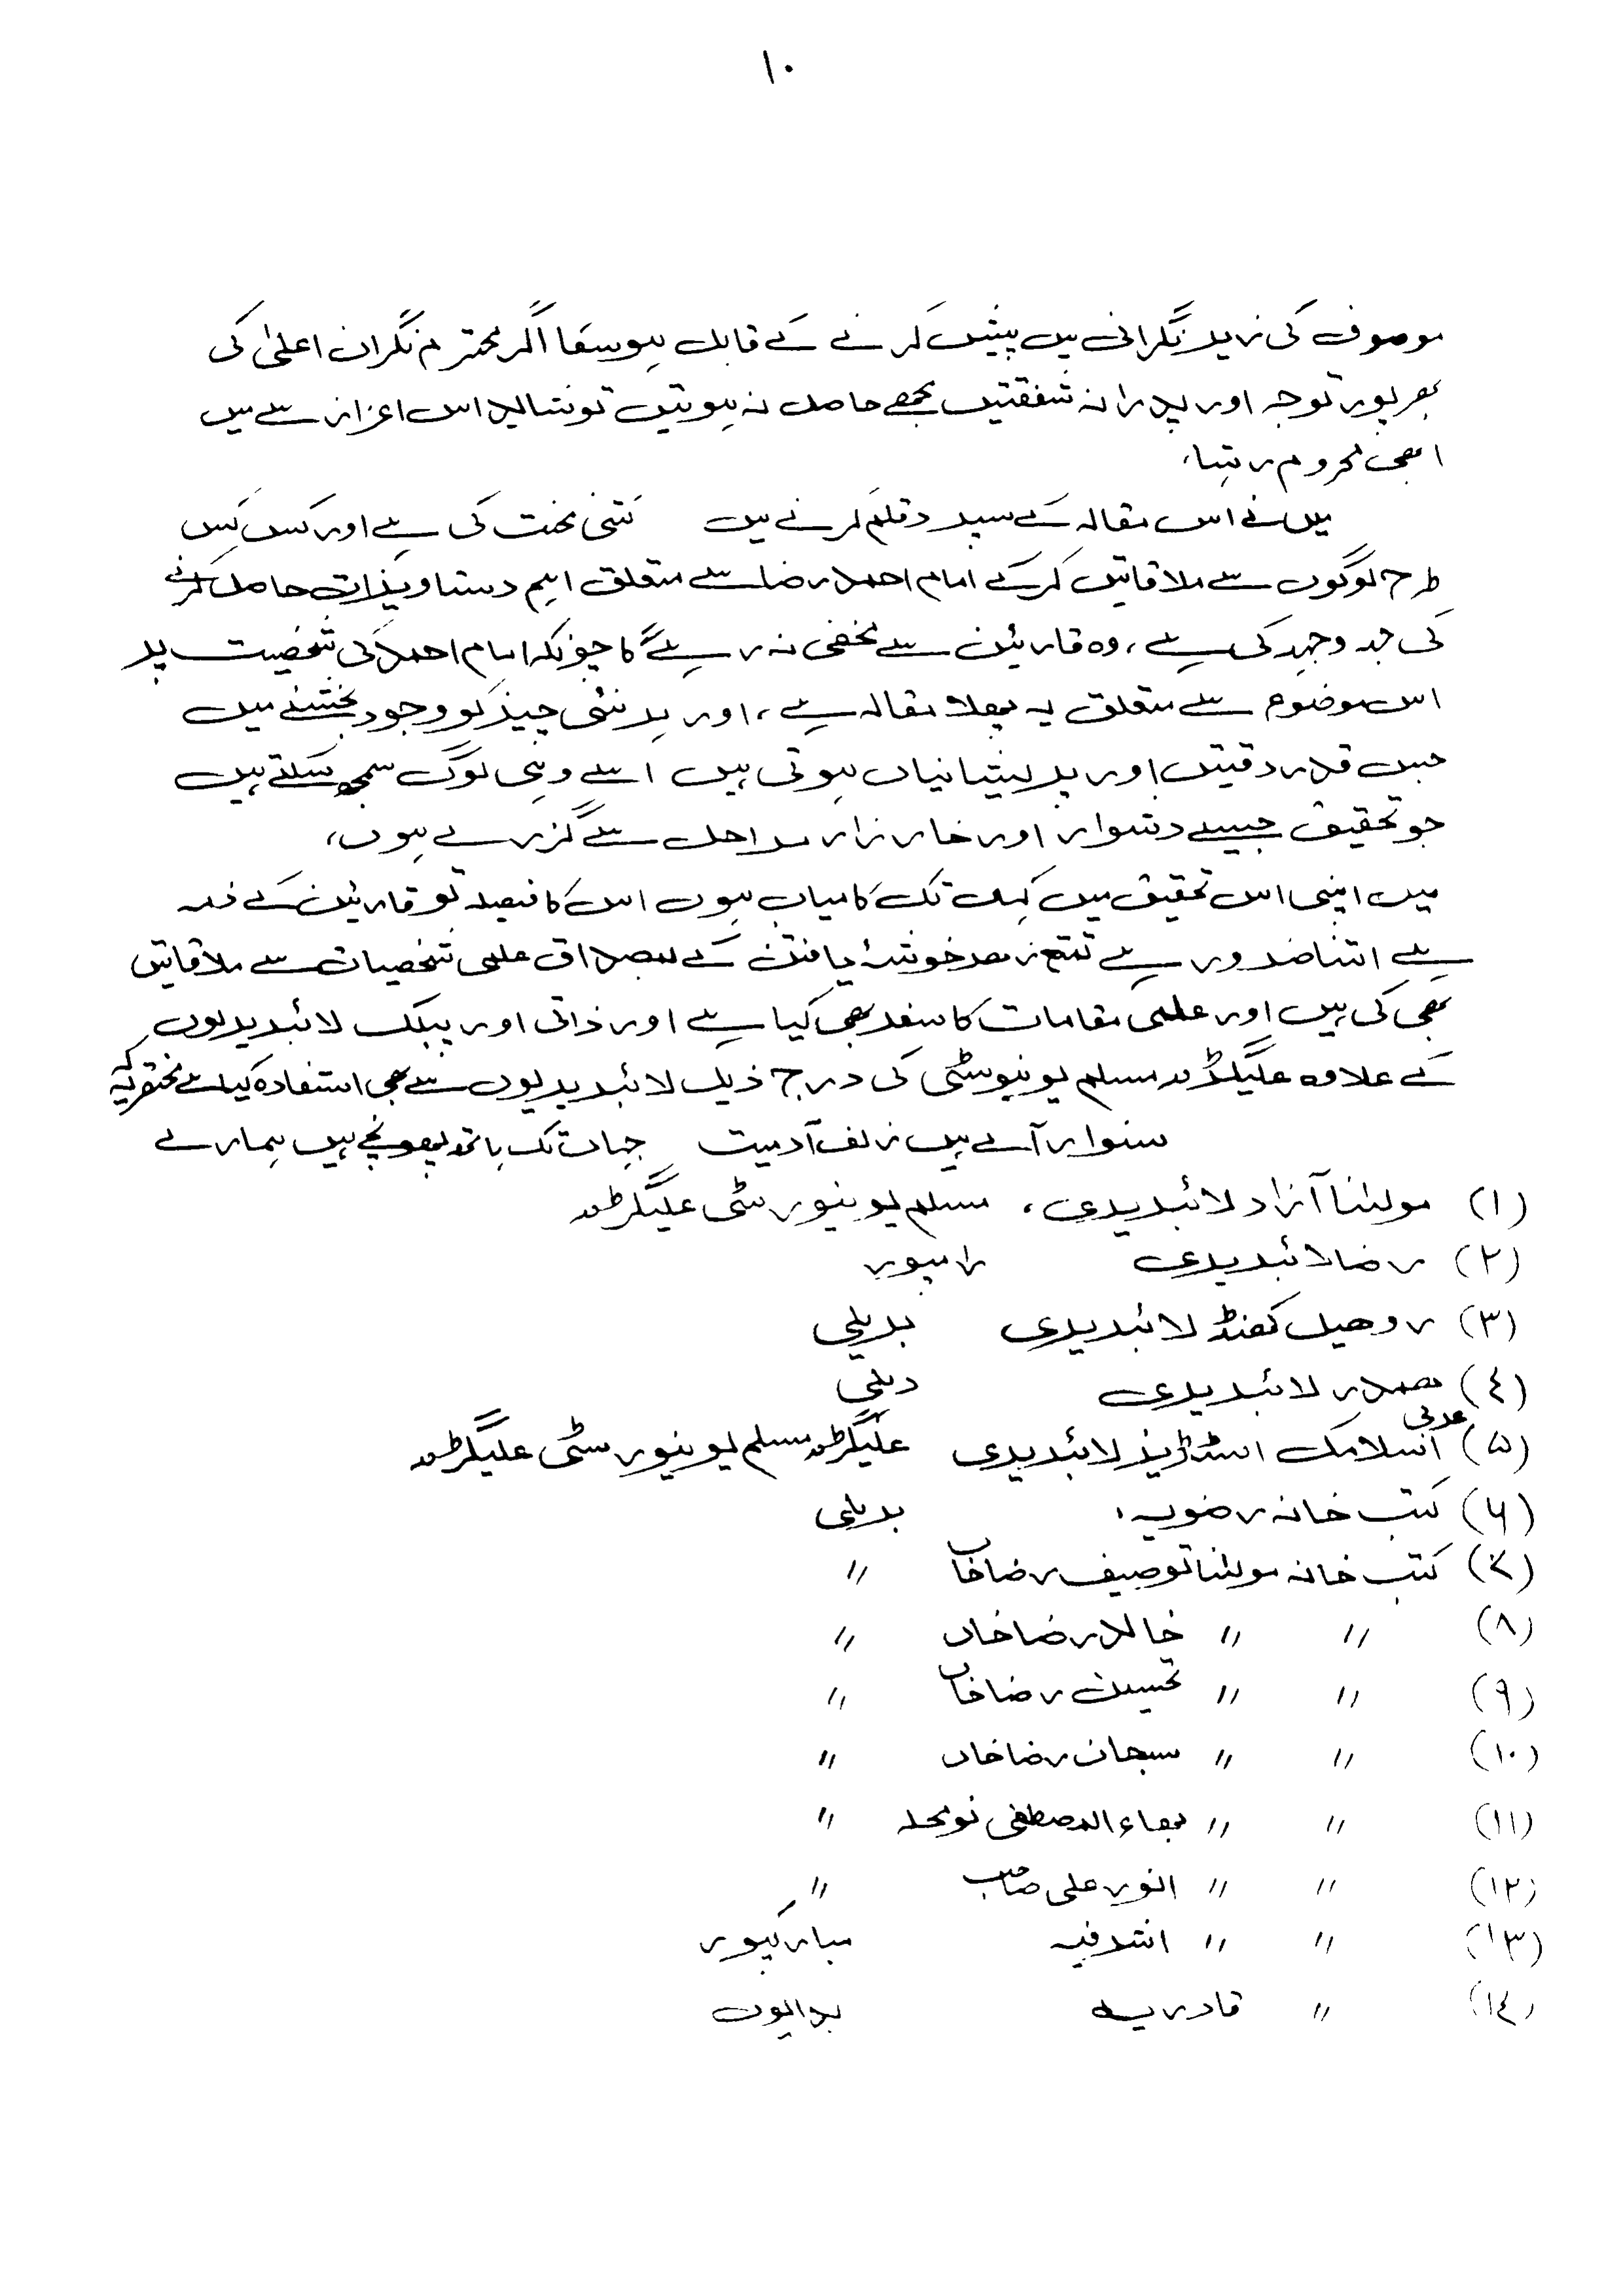 ۱۰
موصوف کی زیر نگرانی میں پیش کرنے کے قابل ہوسکا اگر محترم نگران اعلیٰ کی
بھرپور توجہ اور پدرانہ شفقتیں مجھے حاصل نہ ہوتیں تو شاید اس اعزاز سے میں
ابھی محروم رہتا،
میں نے اس مقالہ کے سپرد قلم کرنے میں کتنی محنت کی ہے اور کس کس
طرح لوگوں سے ملاقاتیں کرکے امام احمد رضا سے متعلق اہم دستاویزات حاصل کرنے
کی جد وجہد کی ہے، وہ قارئین سے مخفی نہ رہے گا چونکہ امام احمد کی شخصیت پر
اس موضوع سے متعلق یہ پھلا مقالہ ہے، اور ہر نئی چیز کو وجود بخشنے میں
جس قدر دقتیں اور پریشانیاں ہوتی ہیں اسے وہی لوگ سمجھ سکتے ہیں
جو تحقیق جیسے دشوار اور خار زار مراحل سے گزرے ہوں،
میں اپنی اس تحقیق میں کہاں تک کامیاب ہوں اس کا فیصلہ تو قارئین کے ذمہ
ہے اتنا ضرور ہے تمتع زھر خوشۂ یافتن کے مصداق علمی شخصیات سے ملاقاتیں
بھی کی ہیں اور علمی مقامات کا سفر بھی کیا ہے اور ذاتی اور پبلک لائبریریوں
کے علاوہ علیگڑھ مسلم یونیوسٹی کی درج ذیل لائبریریوں سے بھی استفادہ کیا ہے مختصر یہ کہ
سنوار آے ہیں زلف آدمیت جہاں تک ہاتھ پھونچے ہیں ہمارے
(۱) مولٰنا آزاد لائبریری، مسلم یونیورسٹی علیگڑھ
(۲) رضا لائبریری رامپور
(۳) روھیل کھنڈ لائبریری بریلی
(٤) ھمدر لائبریری دہلی
(۵) عربی اسلامک اسٹڈیز لائبریری علیگڑھ مسلم یونیورسٹی علیگڑھ
(۶) کتب خانہ رضویہ، بریلی
(۷) کتب خانہ مولٰنا توصیف رضا خاں 〃
(۸) 〃 〃 خالد رضا خاں 〃
(۹) 〃 〃 تحسین رضا خاں 〃
(۱۰) 〃 〃 سبحان رضا خاں 〃
(۱۱) 〃 〃 بھاء المصطفی نومحلہ 〃
(۱۲) 〃 〃 انور علی صاحب 〃
(۱۳) 〃 〃 اشرفیہ مبارکپور
(۱٤) 〃 قادریہ بدایوں